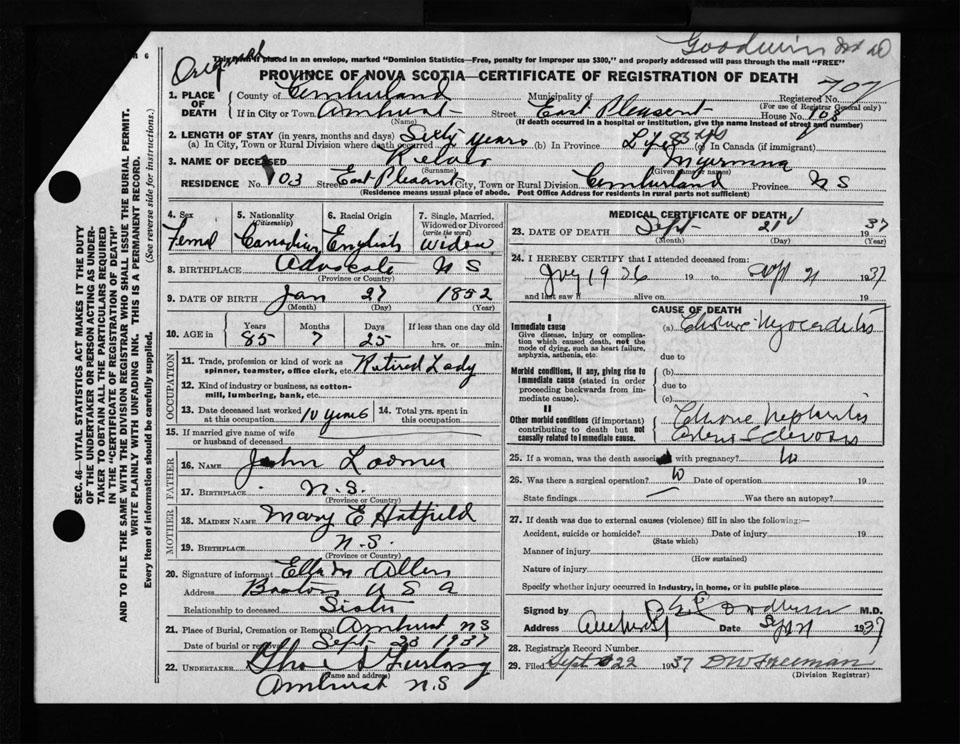 Goodwin
Original
This form if placed in an envelope, marked "Dominion Statistics—Free, penalty for improper use $300," and properly addressed will pass through the mail "FREE"
PROVINCE OF NOVA SCOTIA—CERTIFICATE OF REGISTRATION OF DEATH
707
1. PLACE OF DEATH County of Cumberland Municipality of Registered No.
(For use of Registrar General only)
If in City or Town Amhurst Street East Pleasent House No. 103
(Name) (If death occurred in a hospital or institution, give the name instead of street and number)
2. LENGTH OF STAY (in years, months and days)
(a) In City, Town or Rural Division where death occurred Sixty years (b) In Province Life 85 yrs (c) In Canada (if immigrant)
3. NAME OF DECEASED
(Surname) (Given name or names)
RESIDENCE No. 103 Street East Pleasent City, Town or Rural Division Cumberland Province N S
(Residence means usual place of abode. Post Office Address for residents in rural parts not sufficient)
4. Sex 5. Nationality (Citizenship) 6. Racial Origin 7. Single, Married, Widowed or Divorced (write the word)
Femal Canadian English Widow
8. BIRTHPLACE Advocate N S
(Province or Country)
9. DATE OF BIRTH Jan 27 1852
(Month) (Day) (Year)
10. AGE in Years Months Days If less than one day old
85 7 25 hrs. or min.
OCCUPATION
11. Trade, profession or kind of work as spinner, teamster, office clerk, etc. Retired Lady
12. Kind of industry or business, as cotton-mill, lumbering, bank, etc.
13. Date deceased last worked at this occupation 10 years 14. Total yrs. spent in this occupation
15. If married give name of wife or husband of deceased
FATHER
16. NAME John Loomer
17. BIRTHPLACE N.S.
(Province or Country)
MOTHER
18. MAIDEN NAME Mary E Hatfield
19. BIRTHPLACE N.S.
(Province or Country)
20. Signature of informant Ella M Allen
Address Boston U S A
Relationship to deceased Sister
21. Place of Burial, Cremation or Removal Amhurst NS
Date of burial or removal Sept 23 1937
22. UNDERTAKER
(Name and address)
Amhurst N.S
MEDICAL CERTIFICATE OF DEATH
23. DATE OF DEATH Sept 21 1937
(Month) (Day) (Year)
24. I HEREBY CERTIFY that I attended deceased from:
1926 19 to Sept 21 1937
and last saw h alive on 19
CAUSE OF DEATH
I
Immediate cause (a) Chronic Myocarditis
Give disease, injury or complication which caused death, not the mode of dying, such as heart failure, asphyxia, asthenia, etc.
due to
Morbid conditions, if any, giving rise to immediate cause (stated in order proceeding backwards from immediate cause).
(b)
due to
(c)
II
Other morbid conditions (if important) contributing to death but not causally related to immediate cause.
Chronic Nephritis
Sclerosis
25. If a woman, was the death associated with pregnancy?
26. Was there a surgical operation? Date of operation 19
State findings Was there an autopsy?
27. If death was due to external causes (violence) fill in also the following:—
Accident, suicide or homicide? Date of injury 19
(State which)
Manner of injury
(How sustained)
Nature of injury
Specify whether injury occurred in industry, in home, or in public place
Signed by M.D.
Address Amherst Date Sept 21 1937
28. Registrar's Record Number
29. Filed Sept 22 1937 D W Freeman
(Division Registrar)
SEC. 46—VITAL STATISTICS ACT MAKES IT THE DUTY
OF THE UNDERTAKER OR PERSON ACTING AS UNDER-
TAKER TO OBTAIN ALL THE PARTICULARS REQUIRED
IN THE "CERTIFICATE OF REGISTRATION OF DEATH"
AND TO FILE THE SAME WITH THE DIVISION REGISTRAR WHO SHALL ISSUE THE BURIAL PERMIT.
WRITE PLAINLY WITH UNFADING INK. THIS IS A PERMANENT RECORD.
Every item of information should be carefully supplied. (See reverse side for instructions.)